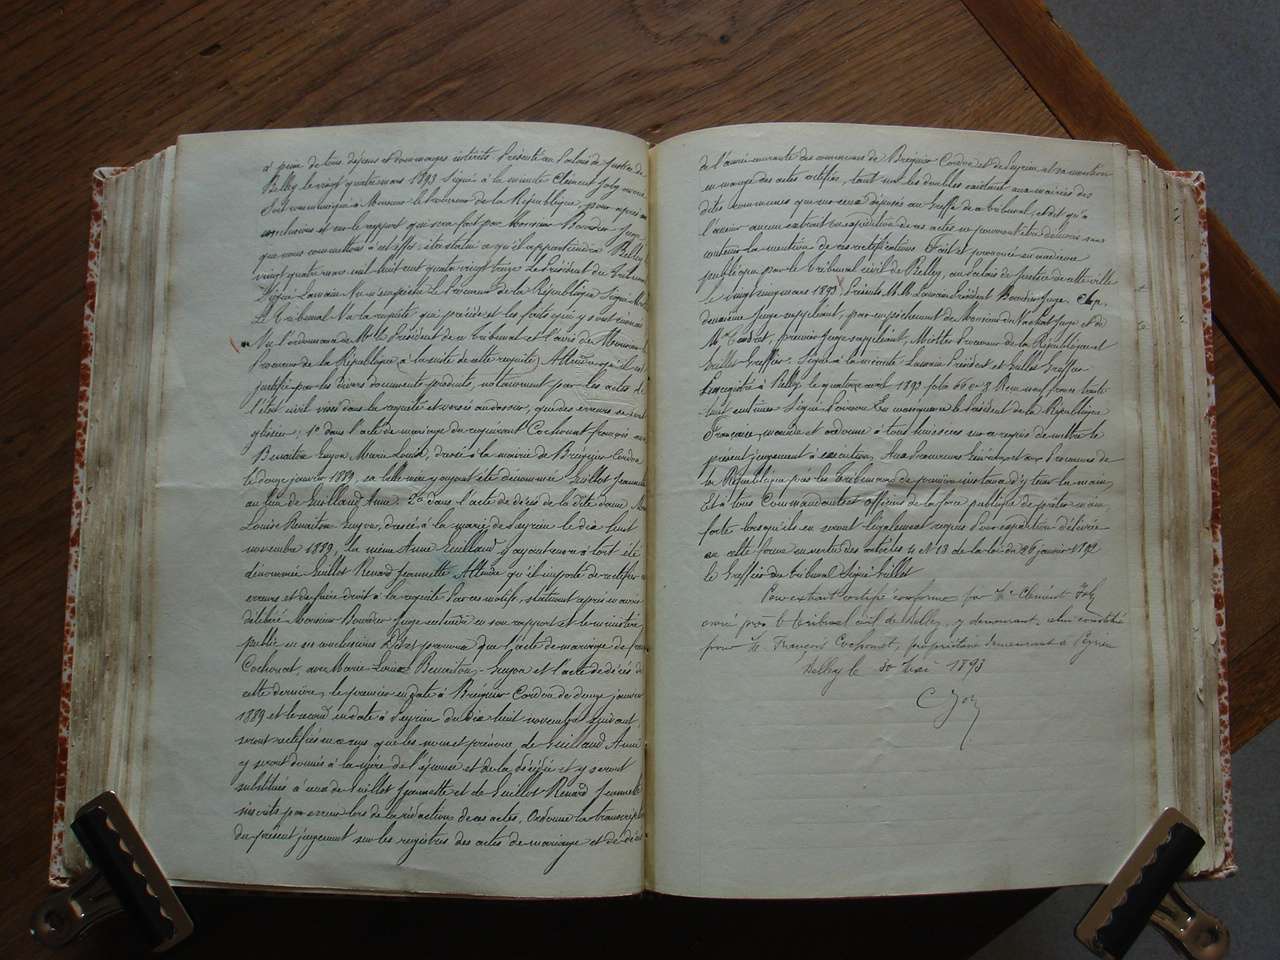 à peine de tous dépens et dommages intérêts Présenté au Palais de Justice de
Belley le vingt quatre mars 1893 Signé à la minute Clément Joly avoué
Soit communiqué à Monsieur le Procureur de la République, pour après ses
conclusions et sur le rapport qui sera fait par Monsieur Bourdin Juge
que nous commettons à cet effet, être statué ce qu'il appartiendra Belley
vingt quatre mars mil huit cent quatre vingt treize Le Président du Tribunal
Signé Lauvain Vu n'empêche Le Procureur de la République Signé
Le Tribunal Vu la requête qui précède et les faits qui y sont énoncés
Vu l'ordonnance de Mr le Président de ce tribunal et l'avis de Monsieur le
Procureur de la République (à la suite de cette requête) Attendu qu'il est
justifié par les divers documents produits, notamment par les actes de
l'état civil visés dans la requête et versés au dossier, que des erreurs se sont
glissées, 1° dans l'acte de mariage du requérant Cochonat françois avec
Benoiton Guyon Marie Louise, dressé à la mairie de Brégnier Cordon
le douze janvier 1889, sa belle mère y ayant été dénommée Guillot Jeannette
au lieu de Guillaud Anne. 2° dans l'acte de décès de la dite dame
Louise Benoiton Guyon, dressé à la mairie de Peyrieu le dix huit
novembre 1889, la même Anne Guillaud y ayant encore à tort été
dénommée Guillot Renard Jeannette Attendu qu'il importe de rectifier ces
erreurs et de faire droit à la requête Par ces motifs, statuant après en avoir
délibéré Monsieur Bourdin Juge entendu en son rapport et le ministère
public en ses conclusions Dit et prononce que l'acte de mariage de françois
Cochonat, avec Marie-Louise Benoiton-Guyon et l'acte de décès de
cette dernière, le premier en date à Brégnier Cordon du douze janvier
1889 et le second en date à Peyrieu du dix huit novembre suivant
seront rectifiés en ce sens que les nom et prénom de Guillaud Anne
y seront donnés à la mère de l'épouse et de la décédée et y seront
substitués à ceux de Guillot Jeannette et de Guillot Renard Jeannette
inscrits par erreur lors de la rédaction de ces actes, Ordonne la transcription
du présent jugement sur les registres des actes de mariage et de décès
de l'année courante des communes de Brégnier Cordon et de Peyrieu et sa mention
en marge des actes rectifiés, tant sur les doubles existant aux mairies des
dites communes que sur ceux déposés au Greffe de ce tribunal, et dit qu'à
l'avenir aucun extrait ou expédition de ces actes ne pourront être délivrés sans
contenir la mention de ces rectifications Fait et prononcé en audience
publique par le tribunal civil de Belley, au palais de Justice de cette ville
le vingt cinq mars 1893 Présents M.M. Lauvain Président Bourdin Juge
deuxième Juge suppléant, par empêchement de Monsieur Juge et de
Me premier Juge suppléant, Procureur de la République et
Guillot Greffier. Signé à la minute Lauvain Président et Guillot Greffier
Enregistré à Belley le quatorze avril 1893 folio 66 Reçu neuf francs trente
huit centimes Signé En conséquence le Président de la République
Française, mande et ordonne à tous huissiers sur ce requis de mettre le
présent jugement à exécution Aux Procureurs Généraux et aux Procureurs de
la République près les tribunaux de première instance d'y tenir la main
Et à tous Commandants et officiers de la force publique de prêter main
forte lorsqu'ils en seront légalement requis Pour expédition délivrée
en cette forme en vertu des articles 4 et 13 de la loi du 26 janvier 1892
le Greffier du tribunal Signé Guillot
Pour extrait certifié conforme par Me Clément Joly
avoué près le tribunal civil de Belley, y demeurant, celui constitué
pour M. François Cochonat, propriétaire demeurant à Peyrieu
Belley le 30 Mai 1893
C Joly